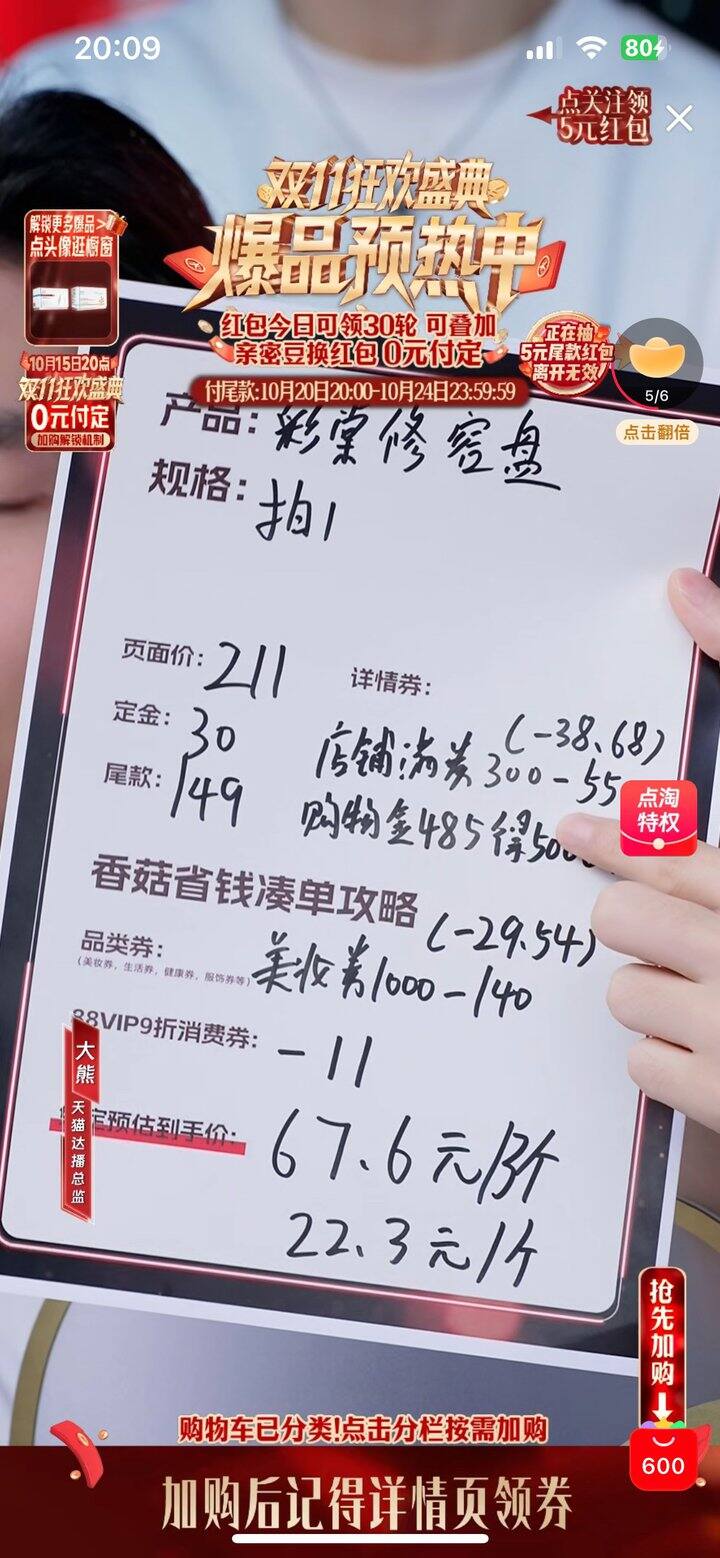 20:09
80
点关注领
5元红包
双11狂欢盛典
爆品预热中
解锁更多爆品>
点头像逛橱窗
红包今日可领30轮 可叠加
亲密豆换红包 0元付定
付尾款:10月20日20:00-10月24日23:59:59
正在抽
5元尾款红包
离开无效
5/6
点击翻倍
10月15日20点
双11狂欢盛典
0元付定
加购解锁机制
产品: 彩棠修容盘
规格: 拍1
页面价: 211
详情券:
定金: 30
(-38.68)
店铺满券300-55
尾款: 149
购物金485得500
点淘
特权
香菇省钱凑单攻略
(-29.54)
品类券:
(美妆券,生活券,健康券,服饰券等)
美妆券1000-140
88VIP9折消费券: -11
大熊
天猫达播总监
定预估到手价:
67.6元/3个
22.3元/个
抢先加购
600
购物车已分类!点击分栏按需加购
加购后记得详情页领券